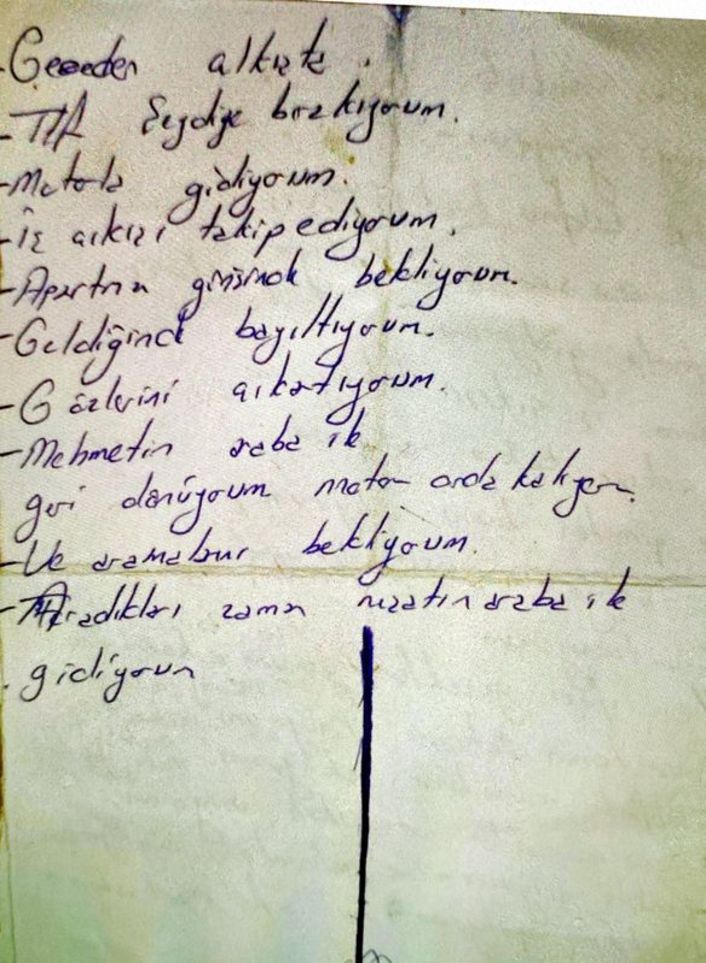 -Geceden alkışta.
-TIR Seydiye bırakıyorum.
-Motorla gidiyorum.
-İş çıkışı takip ediyorum.
-Apartman girişinde bekliyorum.
-Geldiğinde bayıltıyorum.
-Gözlerini çıkartıyorum.
-Mehmetin araba ile
geri dönüyorum motor orda kalıyor.
-Ve aramaları bekliyorum.
-Aradıkları zaman araba ile
gidiyorum